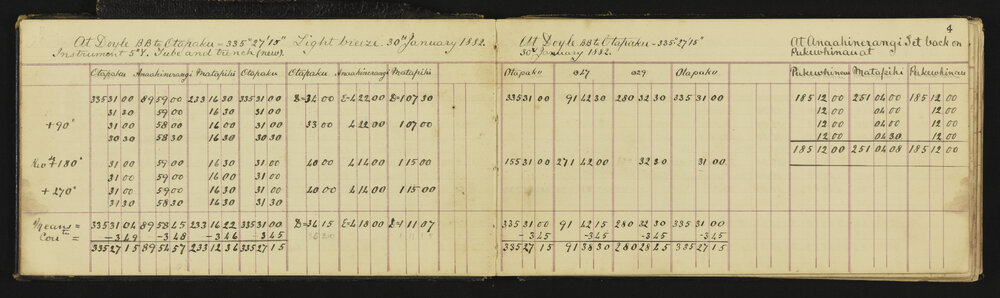 4
At Doyle BB to Otapaku = 335°27'15" Light breeze. 30th January 1882.
Instrument 5" Y. Tube and trench (new).
Otapaku Anaahinerangi Matapihi Otapaku Otapaku Anaahinerangi Matapihi
335 31 00 89 59 00 233 16 30 335 31 00 D=34 00 E=4 22 00 D=1 07 30
31 30 59 00 16 30 31 30
+90° 31 00 58 00 16 00 31 00 33 00 4 22 00 1 07 00
30 30 58 30 16 30 30 30
+180° 31 00 59 00 16 00 31 00 40 00 4 14 00 1 15 00
31 00 59 00 16 00 31 00
+270° 31 00 59 00 16 30 31 00 40 00 4 14 00 1 15 00
31 30 58 30 16 30 31 30
Means = 335 31 04 89 58 45 233 16 22 335 31 00 D=36 15 E=4 18 00 D=1 11 07
Corrtn = -3 49 -3 48 -3 46 -3 45
335 27 15 89 54 57 233 12 36 335 27 15
At Doyle BB to Otapaku = 335°27'15"
30th January 1882.
Otapaku 027 029 Otapaku
335 31 00 91 42 30 280 32 30 335 31 00
155 31 00 271 42 00 32 30 31 00
335 31 00 91 42 15 280 32 30 335 31 00
-3 45 -3 45 -3 45 -3 45
335 27 15 91 38 30 280 28 45 335 27 15
At Anaahinerangi Set back on
Pukewhinau at
Pukewhinau Matapihi Pukewhinau
185 12 00 251 04 00 185 12 00
12 00 04 00 12 00
12 00 04 00 12 00
12 00 04 30 12 00
185 12 00 251 04 08 185 12 00